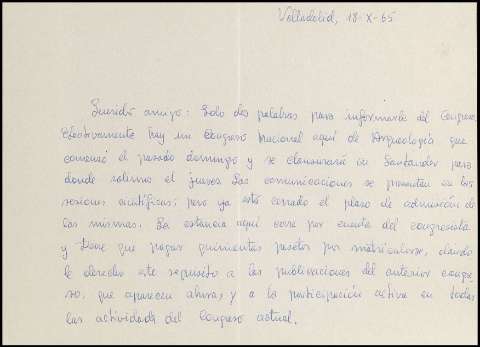 Valladolid, 18-X-65
Querido amigo: Solo dos palabras para informarte del Congreso.
Efectivamente hay un Congreso Nacional aquí de Arqueología que
comenzó el pasado domingo y se clausurará en Santander para
donde salimos el jueves. Las comunicaciones se presentan en las
sesiones científicas; pero ya está cerrado el plazo de admisión de
las mismas. La estancia aquí corre por cuenta del congresista
y tiene que pagar quinientas pesetas por matricularse, dando
le derecho este requisito a las publicaciones del anterior congre
so, que aparecen ahora, y a la participación activa en todas
las actividades del Congreso actual.